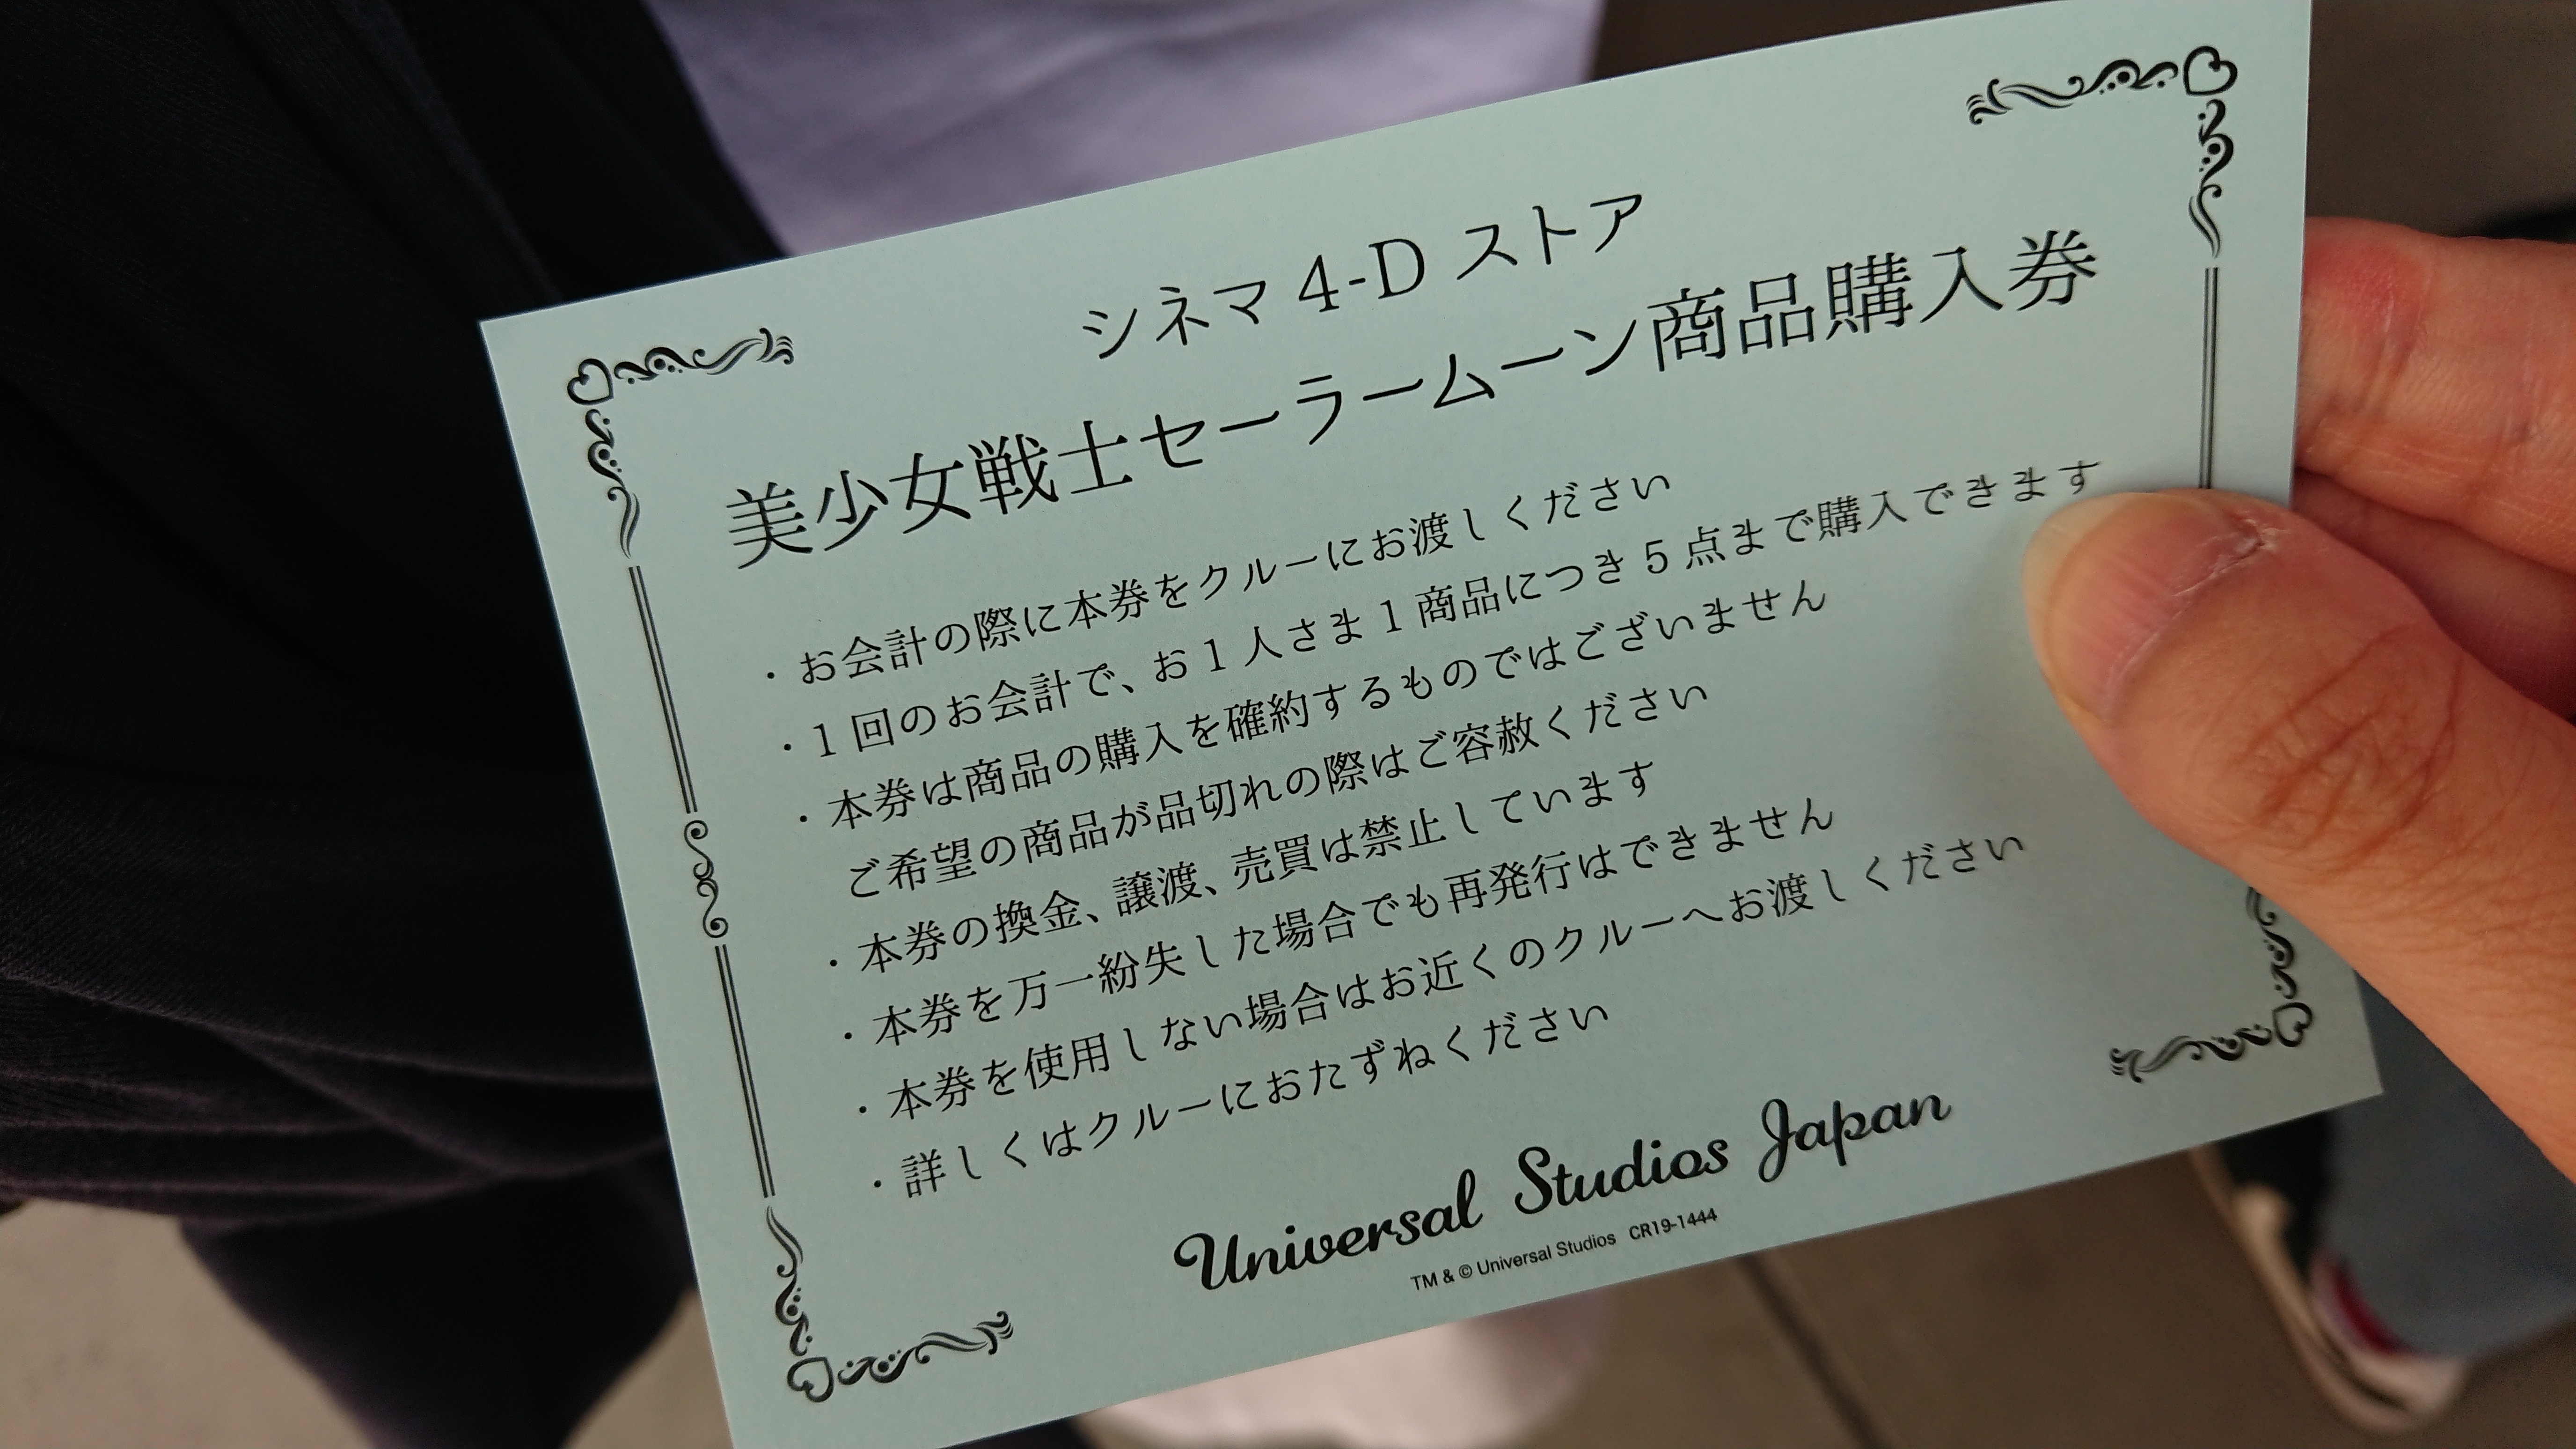 シネマ 4-D ストア
美少女戦士セーラームーン商品購入券
・お会計の際に本券をクルーにお渡しください
・1 回のお会計で、お 1 人さま 1 商品につき 5 点まで購入できます
・本券は商品の購入を確約するものではございません
ご希望の商品が品切れの際はご容赦ください
・本券の換金、譲渡、売買は禁止しています
・本券を万一紛失した場合でも再発行はできません
・本券を使用しない場合はお近くのクルーへお渡しください
・詳しくはクルーにおたずねください
Universal Studios Japan
TM & © Universal Studios CR19-1444